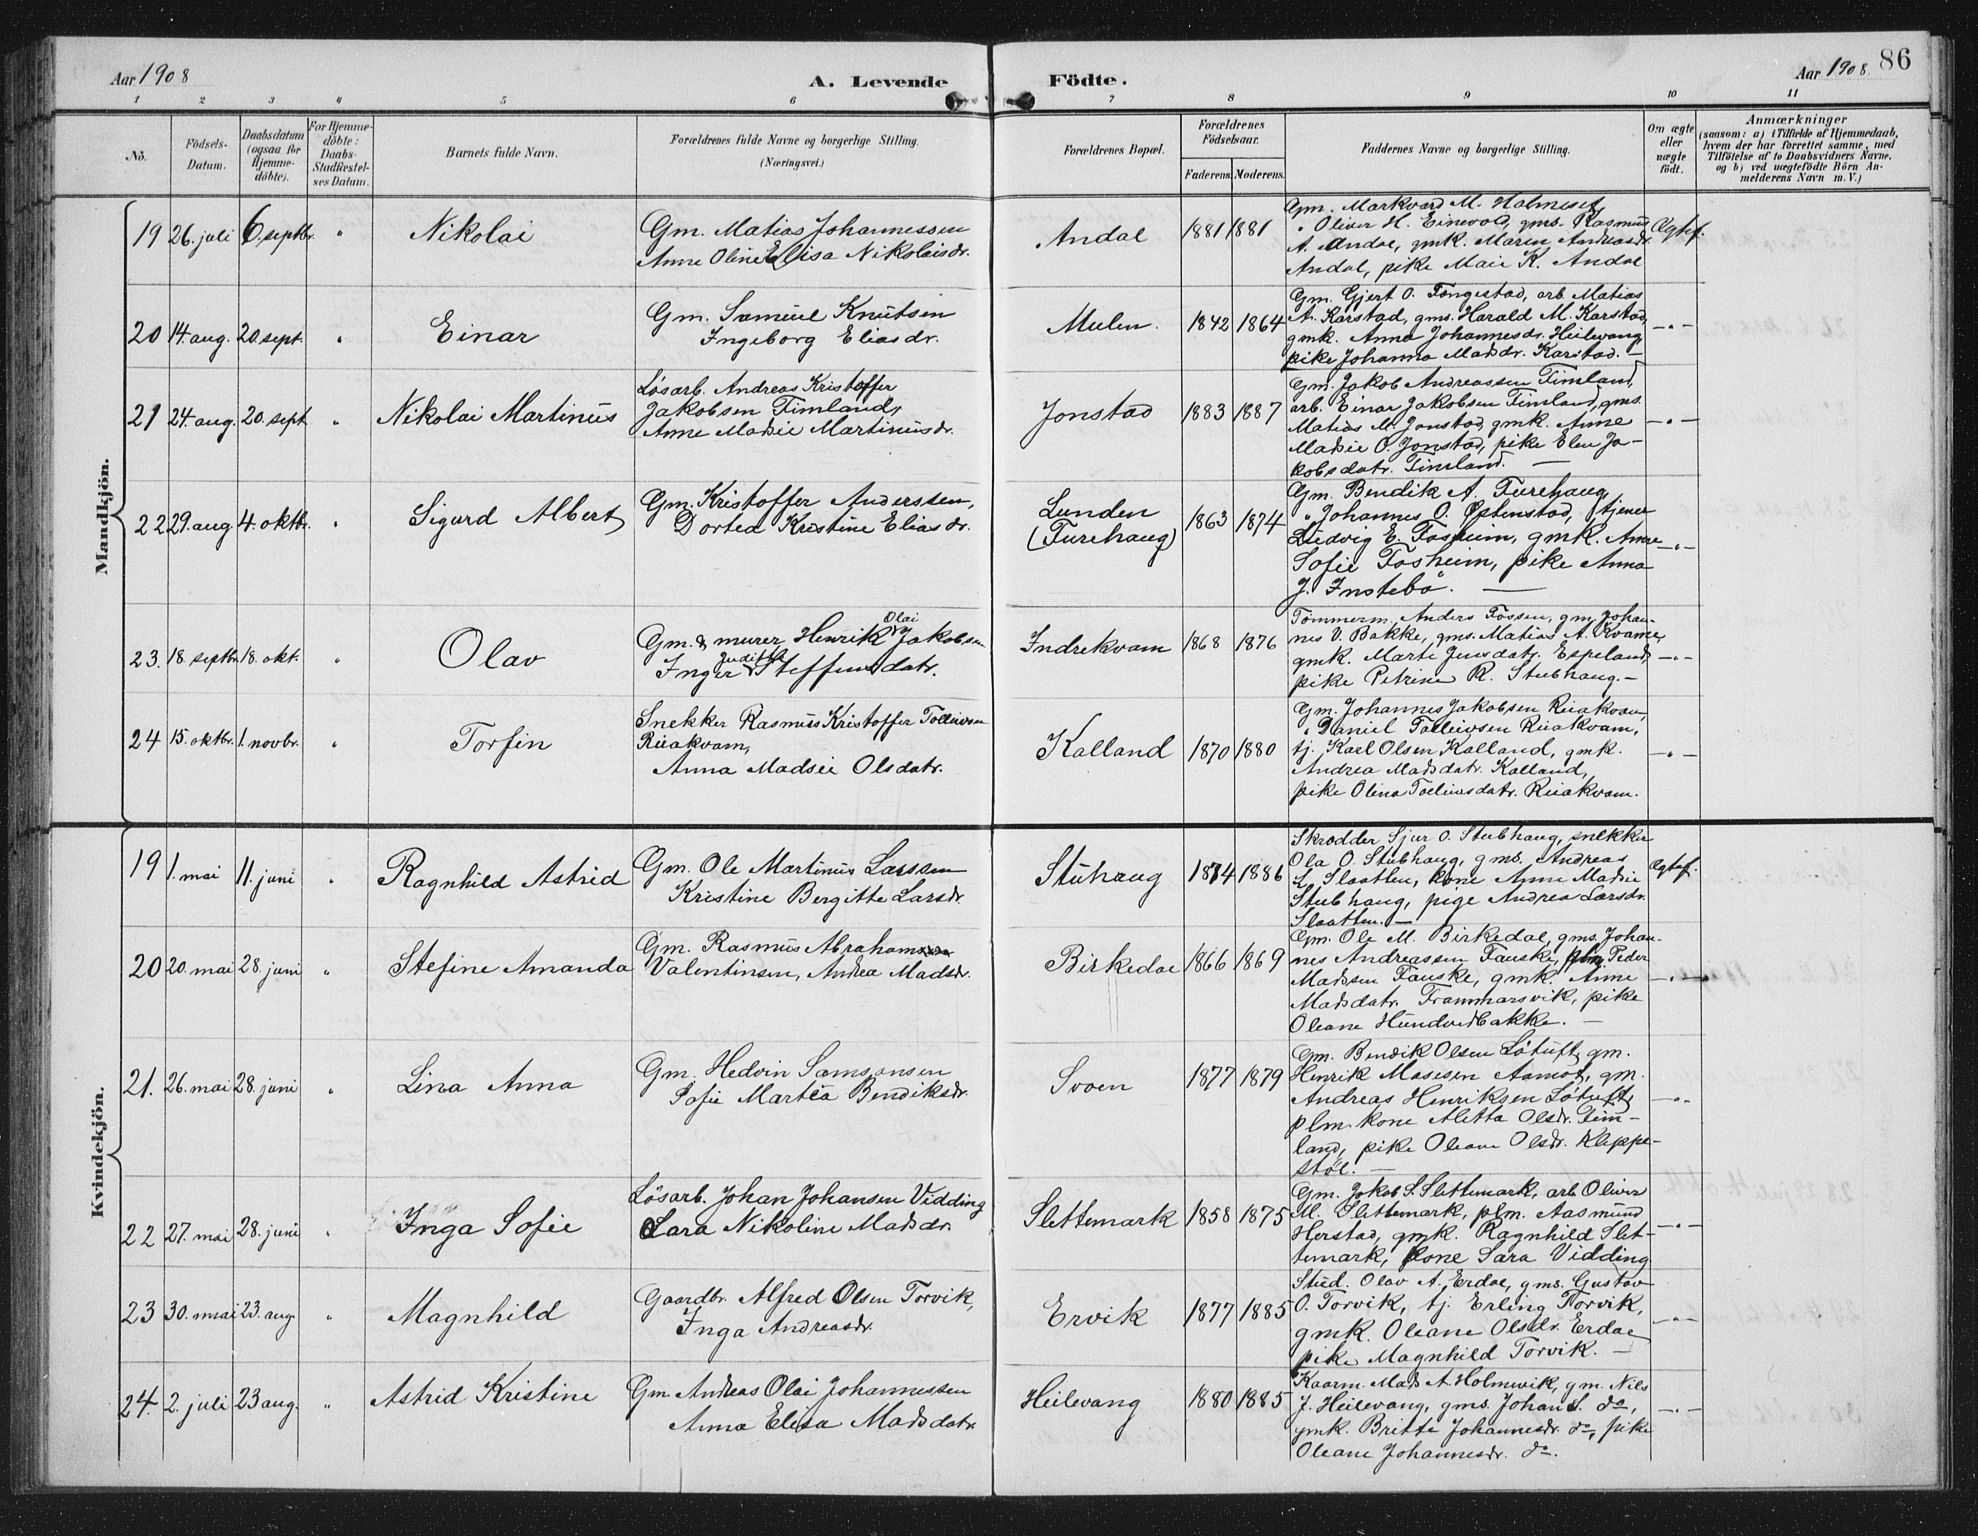 Aar 1908
A. Levende Födte.
Aar 1908. 86
1 2 3 4 5 6 7 8 9 10 11
No.
Födsels-
Datum.
Daabsdatum
(ogsaa for
Hjemme-
döbte).
For Hjemme-
döbte:
Daabs-
Stadfæstel-
ses Datum.
Barnets fulde Navn.
Forældrenes fulde Navne og borgerlige Stilling.
(Næringsvei.)
Forældrenes Bopæl.
Forældrenes
Födselsaar.
Faderens. Moderens.
Faddernes Navne og borgerlige Stilling.
Om ægte
eller
uægte
födt.
Anmærkninger
(saasom: a) i Tilfælde af Hjemmedaab,
hvem der har forrettet samme, med
Tilföielse af to Daabsvidners Navne,
og b) ved uægtefödte Börn An-
melderens Navn m. V.)
Mandkjön.
19 26. juli 6. septbr. " Nikolai
Gm. Matias Johannessen
Anne Oline Elisa Nikolaisdr.
Andal 1881 1881
Gm. Markvard M. Holmeset,
" Oliver H. Einevold, gms. Rasmus
A. Andal, gmk. Maren Andreasdr.
Andal, pike Maie K. Andal
Ægtef.
20 14. aug. 20. sept. " Einar
Gm. Samuel Knutsen
Ingeborg Eliasdr.
Mulen. 1842 1864
Gm. Gjert O. Tongestad, arb. Matias
A. Karstad, gms. Harald M. Karstad,
gmk. Anna Johannesdr. Heilevang,
pike Johanna Madsdr. Karstad. —
— " —
21 24. aug. 20. sept " Nikolai Martinus
Løsarb. Andreas Kristoffer
Jakobsen Timland,
Anne Madsie Martinusdr.
Jonstad 1883 1887
Gm. Jakob Andreassen Timland,
arb. Einar Jakobsen Timland, gms.
Matias M. Jonstad, gmk. Anne
Madsie O. Jonstad, pike Elen Ja-
kobsdatr. Timland. —
— " —
22 29. aug. 4. oktbr. " Sigurd Albert
Gm. Kristoffer Anderssen,
Dortea Kristine Eliasdr.
Lunden
(Furehaug)
1863 1874
Gm. Bendik A. Furehaug,
" Johannes O. Øptenstad, tjener
Ludvig E. Fosheim, gmk. Anne
Sofie Fosheim, pike Anna
J. Instebø. —
— " —
23. 18. septbr. 18. okt. " Olav
Gm. & murer Henrik Olai Jakobsen
Inger Judithe Steffensdatr.
Indrekvam 1868 1876
Tømmerm. Anders Fossen, gm. Johan-
nes V. Bakke, gms. Matias A. Kvame,
gmk. Marte Jensdatr. Espeland,
pike Petrine R. Stubhaug. —
— " —
24 15. oktbr. 1. novbr. " Torfin
Snekker Rasmus Kristoffer Tolleivsen
Riiakvam,
Anna Madsie Olsdatr.
Kalland 1870 1880
Gm. Johannes Jakobsen Riiakvam,
" Daniel Tolleivsen Riiakvam,
tj. Karl Olsen Kalland, gmk.
Andrea Madsdatr. Kalland,
pike Olina Tolleivsdatr. Riiakvam.
— " —
Kvindekjön.
19 1. mai 11. juni " Ragnhild Astrid
Gm. Ole Martinus Larssen
Kristine Bergitte Larsdr.
Stuhaug 1874 1886
Skrædder Sjur O. Stubhaug, snekker
Ola O. Stubhaug, gms. Andreas
L. Slaatten, kone Anne Madsie
Stubhaug, pige Andrea Larsdr.
Slaatten. —
Ægtef.
20 20. mai 28. juni " Stefine Amanda
Gm. Rasmus Abraham
Valentinsen, Andrea Madsdr.
Birkedal 1866 1869
Gm. Ole M. Birkedal, gms. Johan-
nes Andreassen Fauske, plm. Peder
Madsen Fauske, gmk. Anne
Madsdatr. Frammarsvik, pike
Oleane Hundvedbakke. —
— " —
21. 26. mai 28. juni " Lina Anna
Gm. Hedvin Samsonsen
Sofie Martea Bendiksdr.
Svoen 1877 1879
Gm. Bendik Olsen Løtuft, gm.
Henrik Mosesen Aamot, gm.
Andreas Henriksen Løtuft,
plm. kone Aletta Olsdr. Tim-
land, pike Oleane Olsdr. Kleppe-
støl. —
— " —
22 27. mai 28. juni " Inga Sofie
Løsarb. Johan Johansen Vidding
Sara Nikoline Madsdr.
Slettemark 1858 1875
Gm. Jakob S. Slettemark, arb. Oliver
M. Slettemark, plm. Aasmund
Herstad, gmk. Ragnhild Slet-
temark, kone Sara Vidding
— " —
23 30. mai 23. aug. " Magnhild
Gaardbr. Alfred Olsen Torvik,
Inga Andreasdr.
Ervik 1877 1885
Stud. Olav A. Erdal, gms. Gustav
O. Torvik, tj. Erling Torvik,
gmk. Oleane Olsdr. Erdal
pike Magnhild Torvik. —
— " —
24. 2. juli 23 aug. " Astrid Kristine
Gm. Andreas Olai Johannessen
Anna Elisa Madsdatr.
Heilevang 1880 1885
Kaarm. Mads A. Holmevik, gm. Nils
J. Heilevang, gms. Johan S. do,
gmk. Britte Johannesdr. do, pike
Oleane Johannesdr. do.
— " —